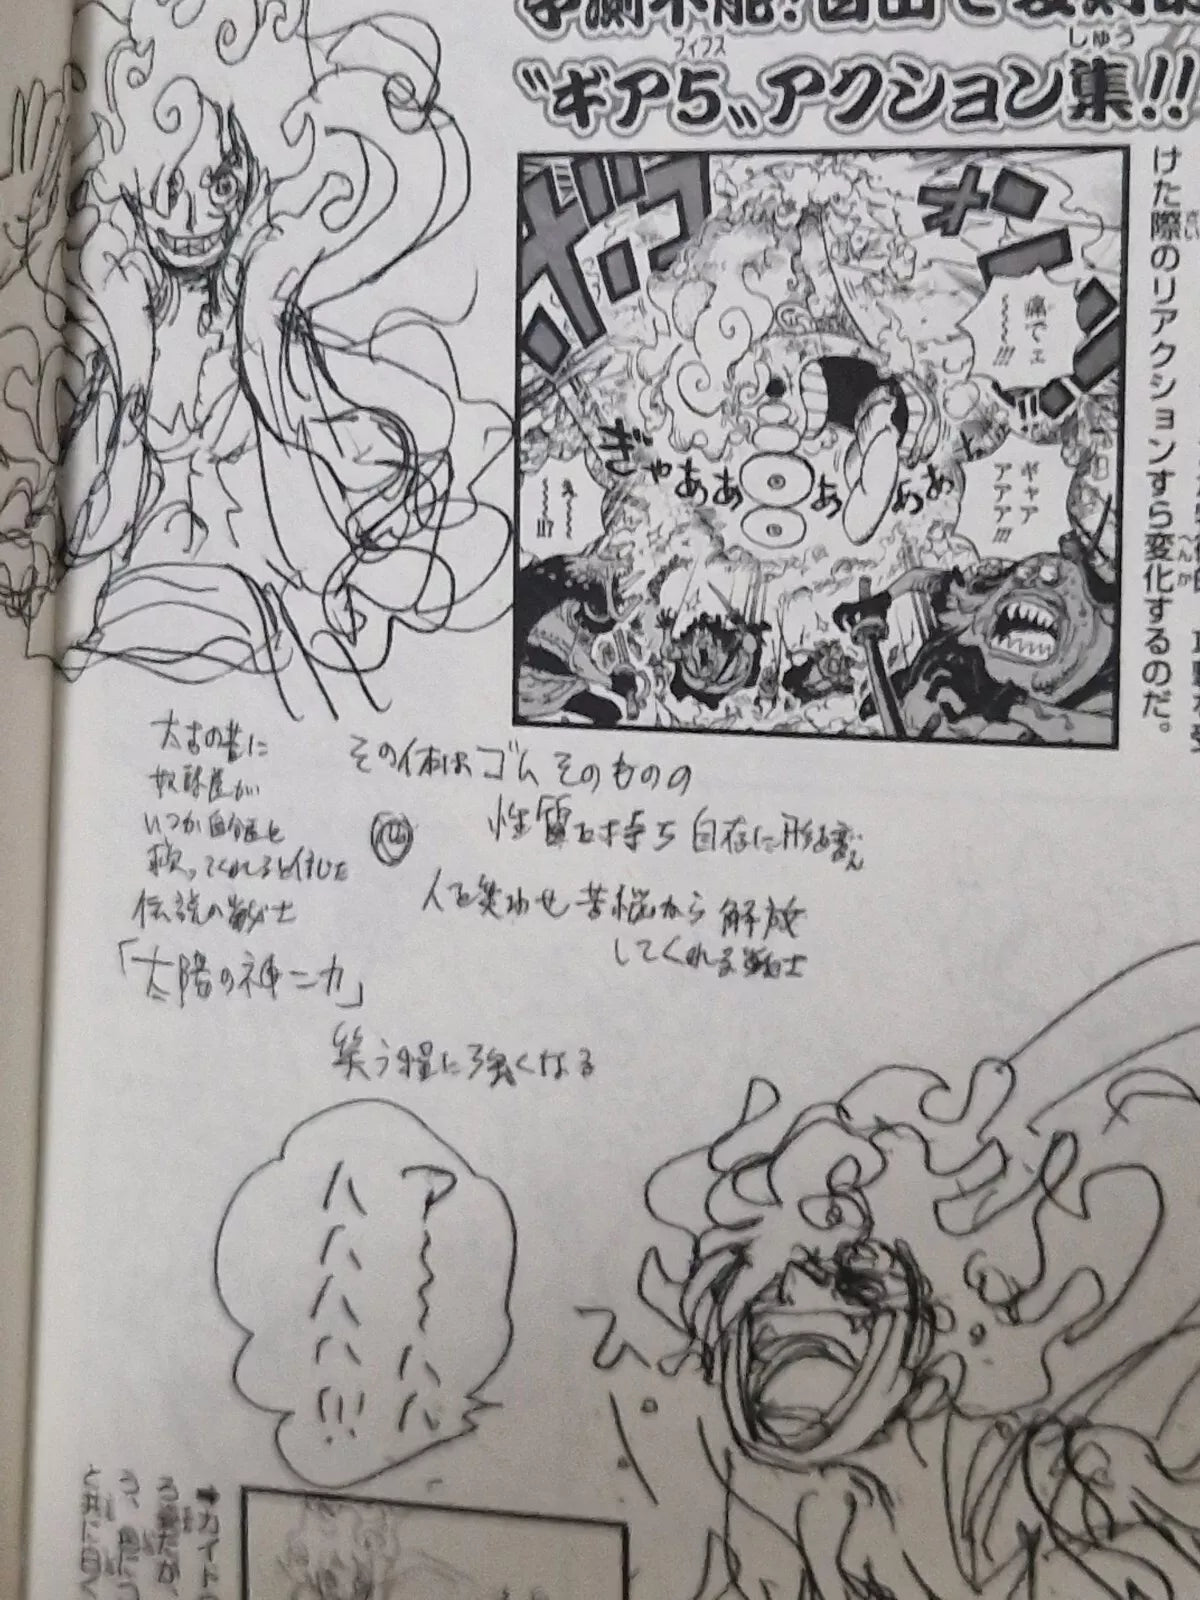 "ギア5"アクション集!!
フィフス
しゅう
けた際のリアクションすら変化するのだ。
さい
へんか
ドン
痛でェ
~~~!!!
ギャア
アアア!!!
え~~
~~!!!?
ぎゃああああああ
太古の昔に
奴隷達が
いつか自分達を
救ってくれると信じた
伝説の戦士
「太陽の神ニカ」
その体はゴムそのものの
性質を持ち 自在に形を変え
人を笑わせ 苦悩から 解放
してくれる戦士
笑う程に強くなる
ア~~ハハ
ハハハハ!!!
カイド